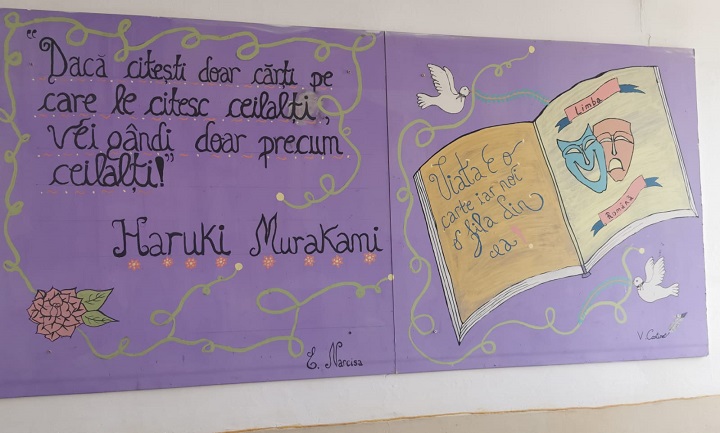 "Dacă citești doar cărți pe
care le citesc ceilalți,
vei gândi doar precum
ceilalți!"
Haruki Murakami
E. Narcisa
Viața E o
carte iar noi
o filă din
ea
Limba
Română